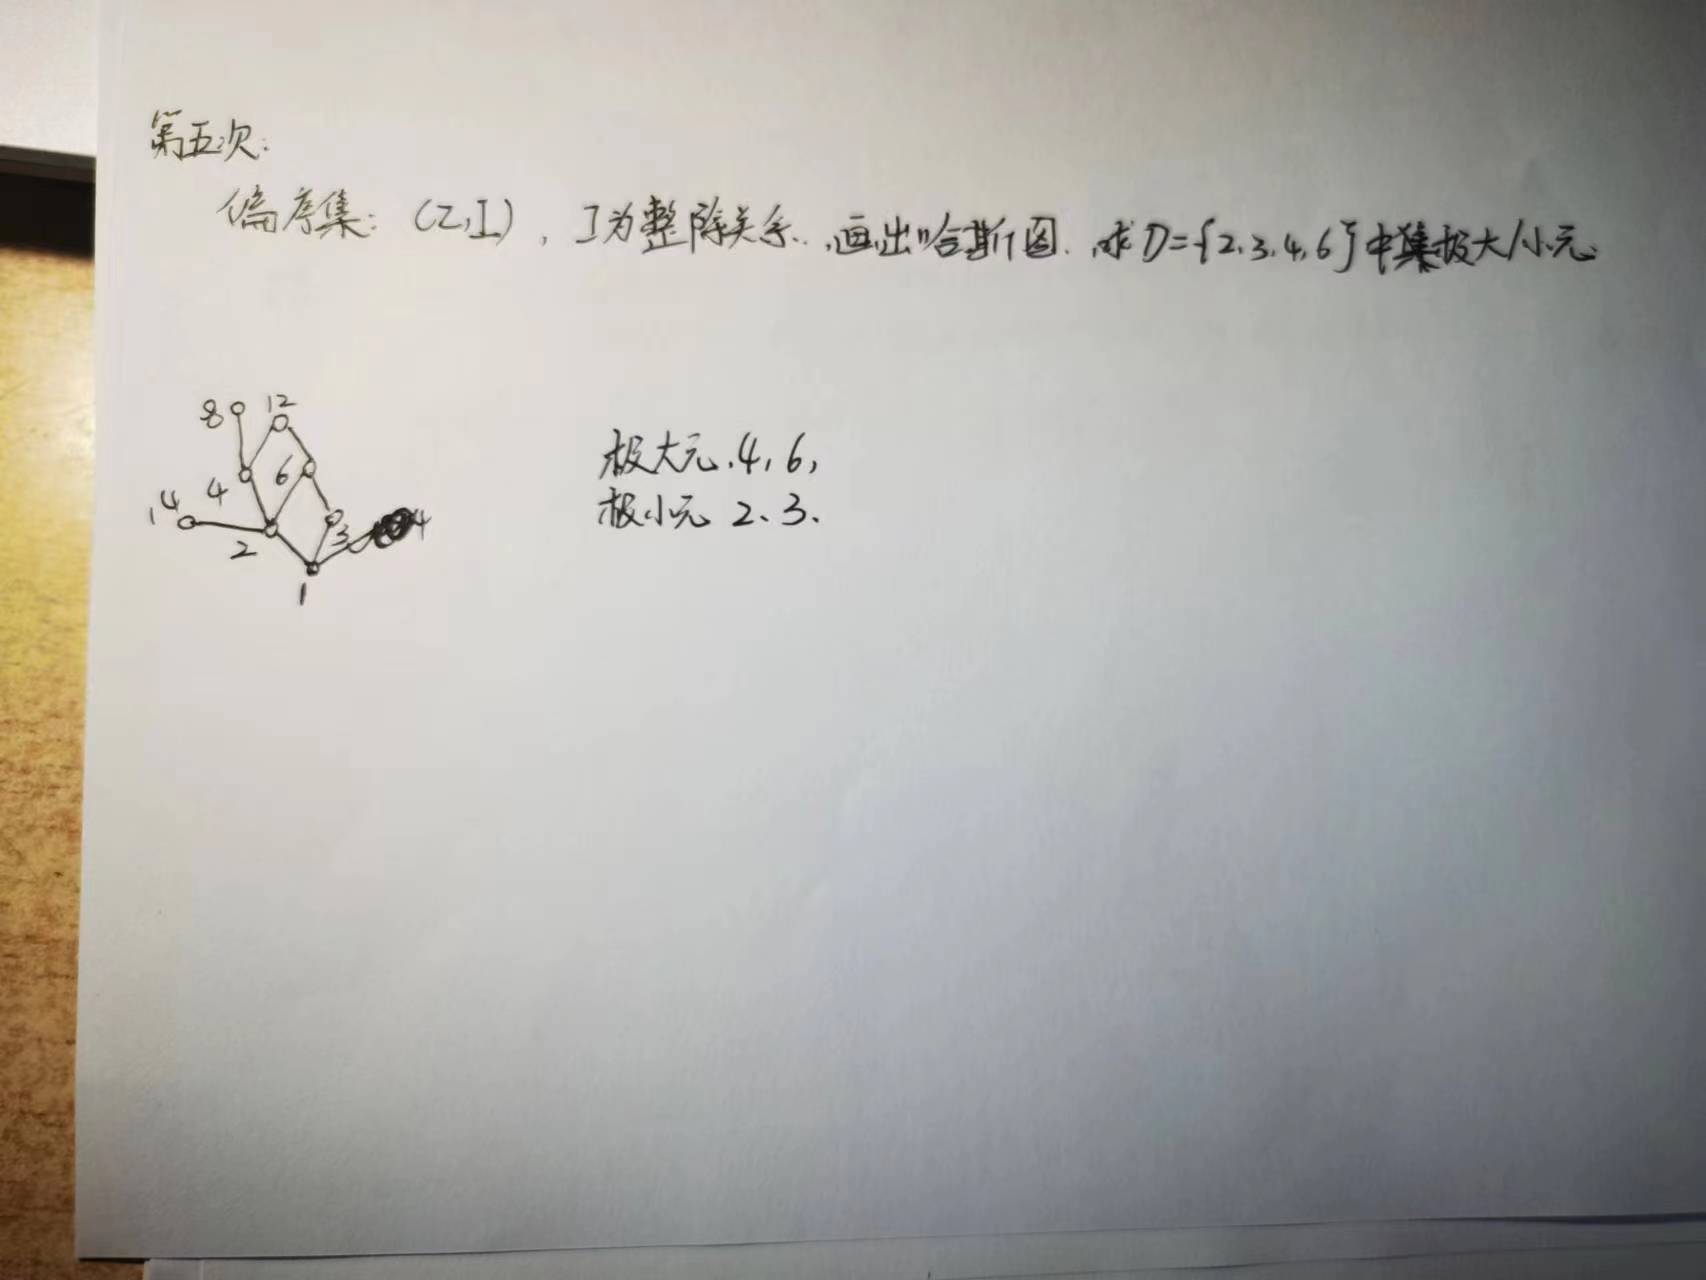 第五次:
偏序集: (Z,I), I为整除关系.,画出哈斯图.求D={2、3、4、6}中集极大/小元.
8 12
4 6
14
2 3 4
1
极大元.4,6,
极小元 2、3、